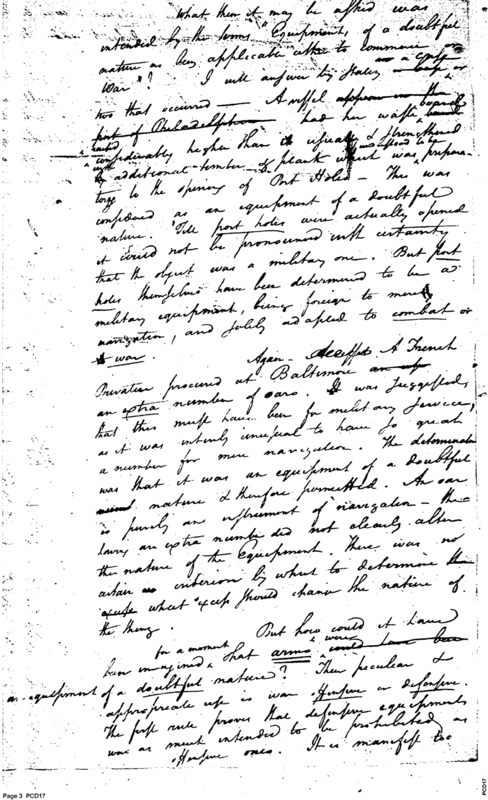 What then it may be asked was
intended by the terms "Equipments of a doubtful
nature as being applicable either to commerce
War"? I will answer by stating a case or
two that occurred — A vessel
port of Philadelphia had her waste boards
considerably higher than is usual & strengthened
by additional timber & plank which was prepara-
tory to the opening of Port Holes — This was
considered as an equipment of a doubtful
nature. Till port holes were actually opened
it could not be pronounced with certainty
that the object was a military one. But port
holes themselves have been determined to be a
military equipment, being foreign to mere
navigation, and solely adapted to combat or
war.
Again — A French
Privateer procured at Baltimore
an extra number of oars. It was suggested
that this must have been for military service,
as it was intirely unusual to have so great
a number for mere navigation. The determination
was that it was an equipment of a doubtful
nature & therefore permitted. An oar
is purely an instrument of navigation — the
having an extra number did not clearly alter
the nature of the equipment. There was no
certain criterion by which to determine the
what excess should change the nature of
the thing.
But how could it have
for a moment
been imagined that arms were could have been
an equipment of a doubtful nature? Their peculiar &
appropriate use is war offensive or defensive.
The first rule proves that defensive equipments
was as much intended to be prohibited as
offensive ones. It is manifest too
Page 3 PCD17
PCD17